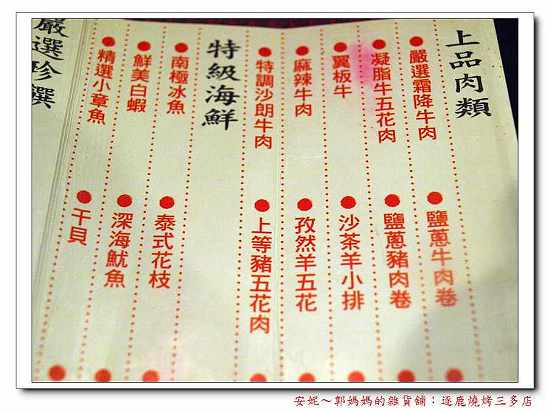 上品肉類
嚴選霜降牛肉
鹽蔥牛肉卷
凝脂牛五花肉
鹽蔥豬肉卷
翼板牛
沙茶羊小排
麻辣牛肉
孜然羊五花
特調沙朗牛肉
上等豬五花肉
特級海鮮
南極冰魚
泰式花枝
鮮美白蝦
深海魷魚
精選小章魚
干貝
嚴選珍饌
安妮~郭媽媽的雜貨舖：逐鹿燒烤三多店